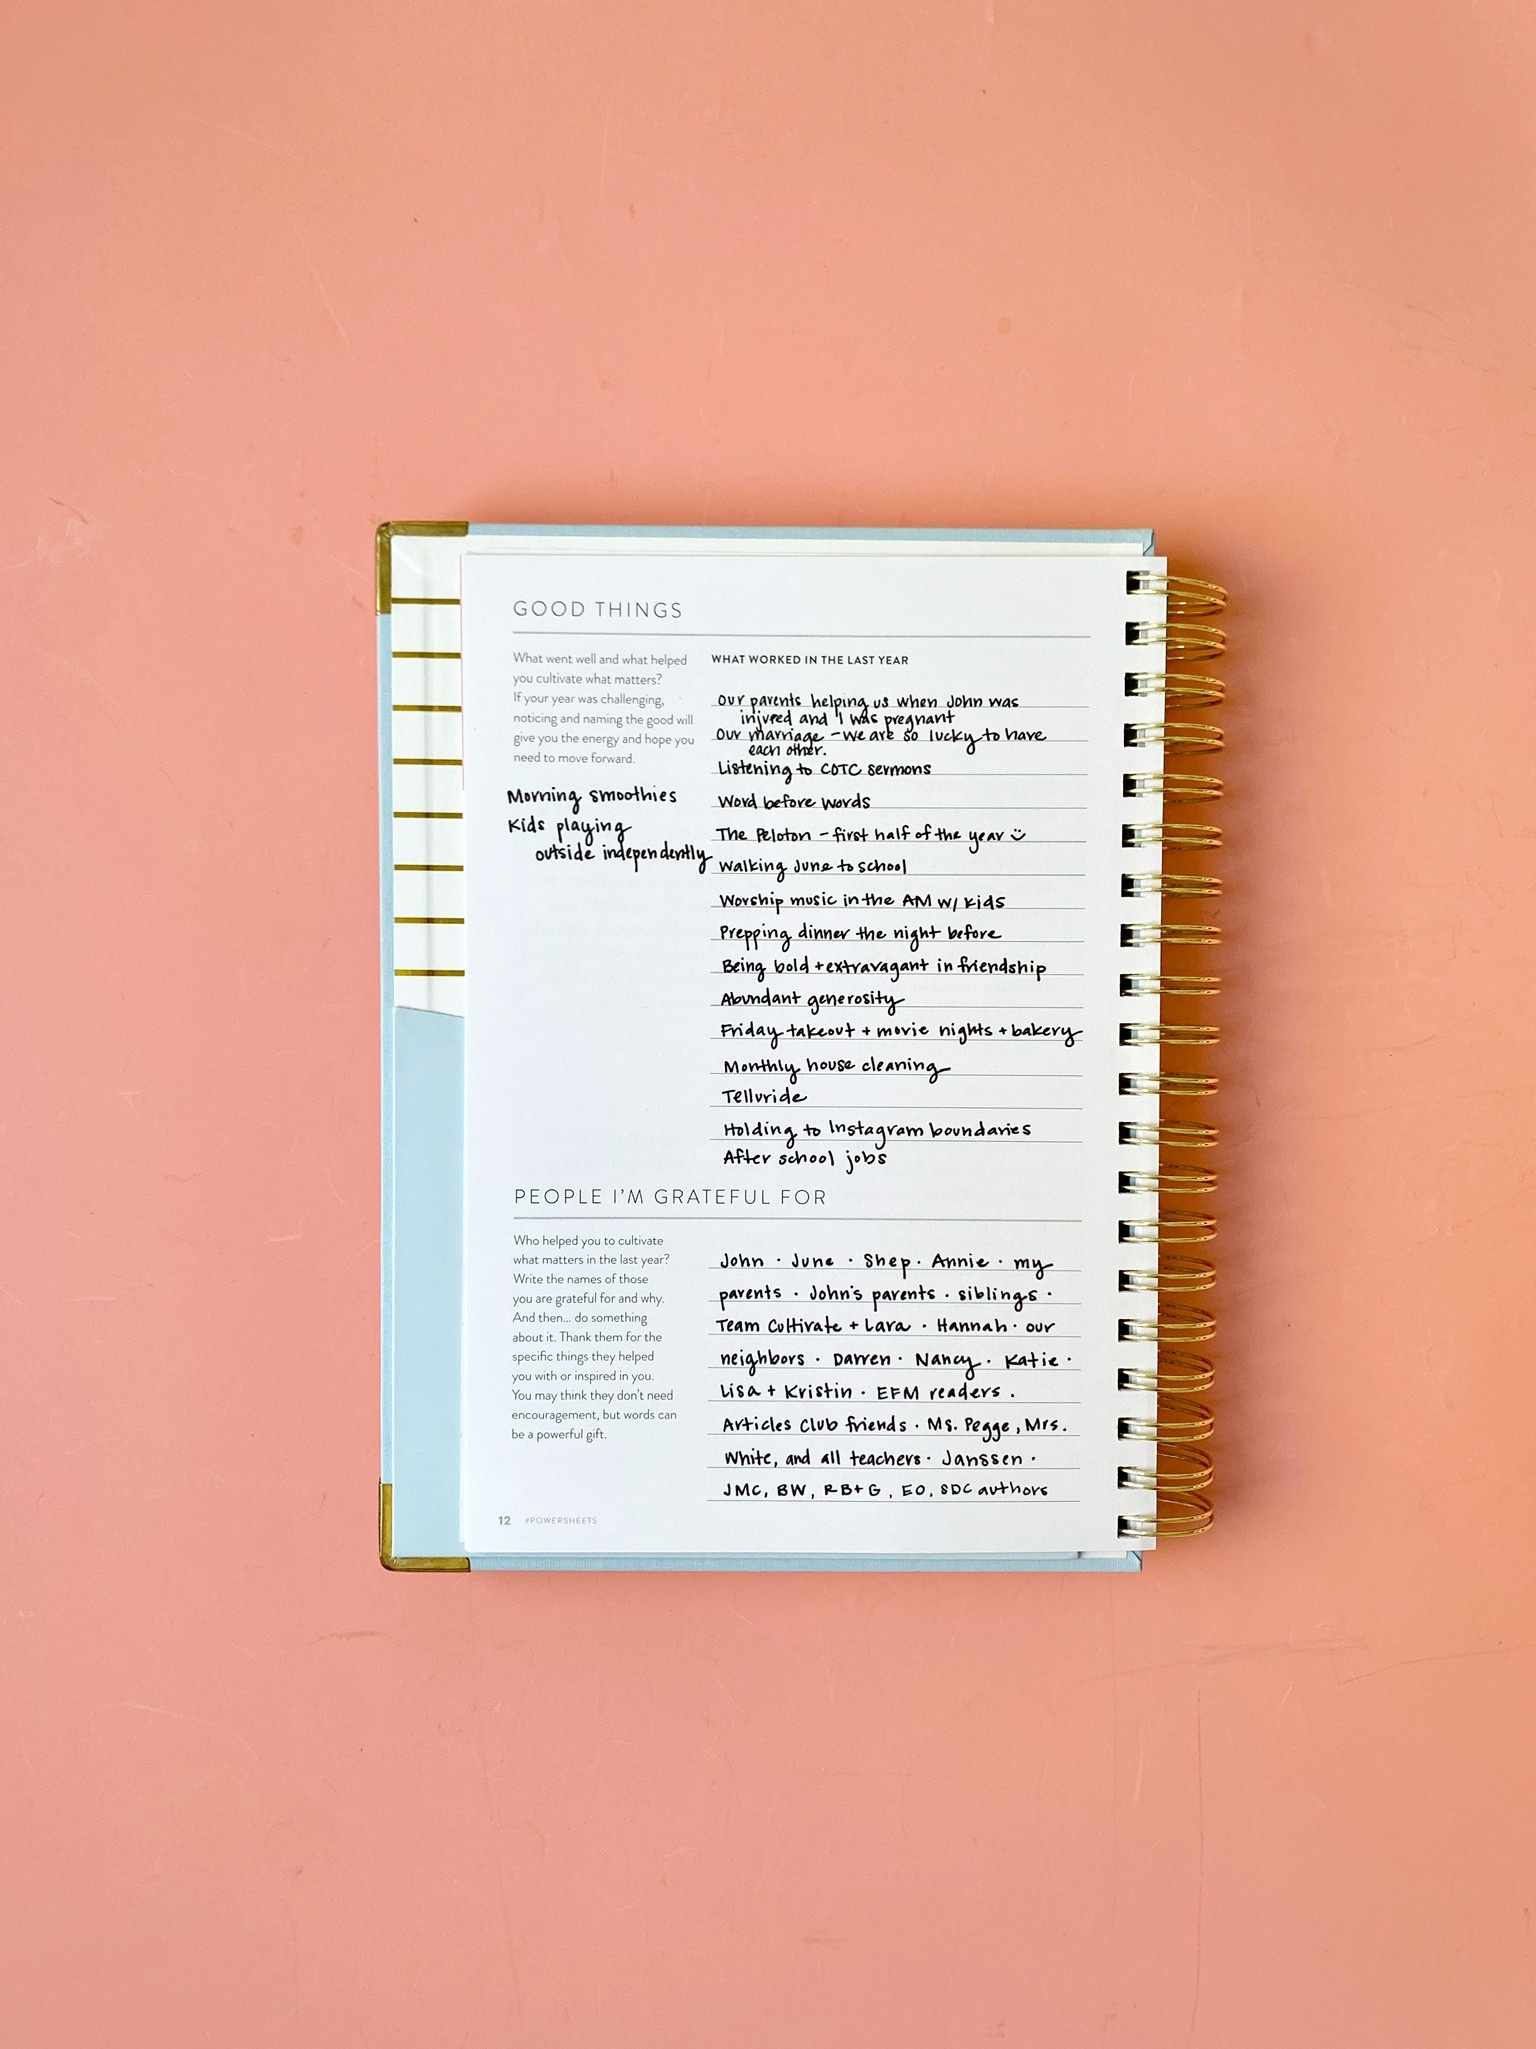 GOOD THINGS
What went well and what helped
you cultivate what matters?
If your year was challenging,
noticing and naming the good will
give you the energy and hope you
need to move forward.
Morning smoothies
Kids playing
outside independently
WHAT WORKED IN THE LAST YEAR
Our parents helping us when John was
injured and I was pregnant
Our marriage - we are so lucky to have
each other.
Listening to COTC sermons
Word before words
The Peloton - first half of the year
Walking June to school
Worship music in the AM w/ kids
Prepping dinner the night before
Being bold + extravagant in friendship
Abundant generosity
Friday takeout + movie nights + bakery
Monthly house cleaning
Telluride
Holding to Instagram boundaries
After school jobs
PEOPLE I'M GRATEFUL FOR
Who helped you to cultivate
what matters in the last year?
Write the names of those
you are grateful for and why.
And then... do something
about it. Thank them for the
specific things they helped
you with or inspired in you.
You may think they don't need
encouragement, but words can
be a powerful gift.
John · June · Shep · Annie · my
parents · John's parents · siblings ·
Team Cultivate + Lara · Hannah · our
neighbors · Darren · Nancy · Katie ·
Lisa + Kristin · EFM readers ·
Articles Club friends · Ms. Pegge, Mrs.
White, and all teachers · Janssen ·
JMC, BW, RB+G, EO, SDC authors
12 #POWERSHEETS